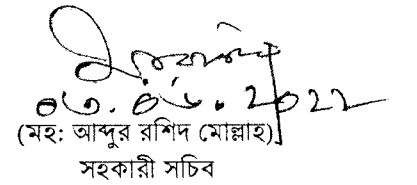 ০৩.০৬.2022
(মহ: আব্দুর রশিদ মোল্লাহ)
সহকারী সচিব